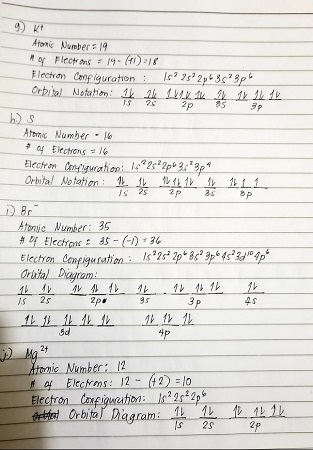 g.) K⁺
Atomic Number = 19
# of Electrons = 19 - (+1) = 18
Electron Configuration : 1s² 2s² 2p⁶ 3s² 3p⁶
Orbital Notation: 1↓ 1↓ 1↓ 1↓ 1↓ 1↓ 1↓ 1↓ 1↓
1s 2s 2p 3s 3p
h.) S
Atomic Number = 16
# of Electrons = 16
Electron Configuration: 1s² 2s² 2p⁶ 3s² 3p⁴
Orbital Notation: 1↓ 1↓ 1↓ 1↓ 1↓ 1↓ 1↓ 1 1
1s 2s 2p 3s 3p
i.) Br⁻
Atomic Number: 35
# of Electrons = 35 - (-1) = 36
Electron Configuration : 1s² 2s² 2p⁶ 3s² 3p⁶ 4s² 3d¹⁰ 4p⁶
Orbital Diagram:
1↓ 1↓ 1↓ 1↓ 1↓ 1↓ 1↓ 1↓ 1↓ 1↓
1s 2s 2p 3s 3p 4s
1↓ 1↓ 1↓ 1↓ 1↓ 1↓ 1↓ 1↓
3d 4p
j.) Mg²⁺
Atomic Number: 12
# of Electrons: 12 - (+2) = 10
Electron Configuration: 1s² 2s² 2p⁶
Orbital Diagram: 1↓ 1↓ 1↓ 1↓ 1↓
1s 2s 2p